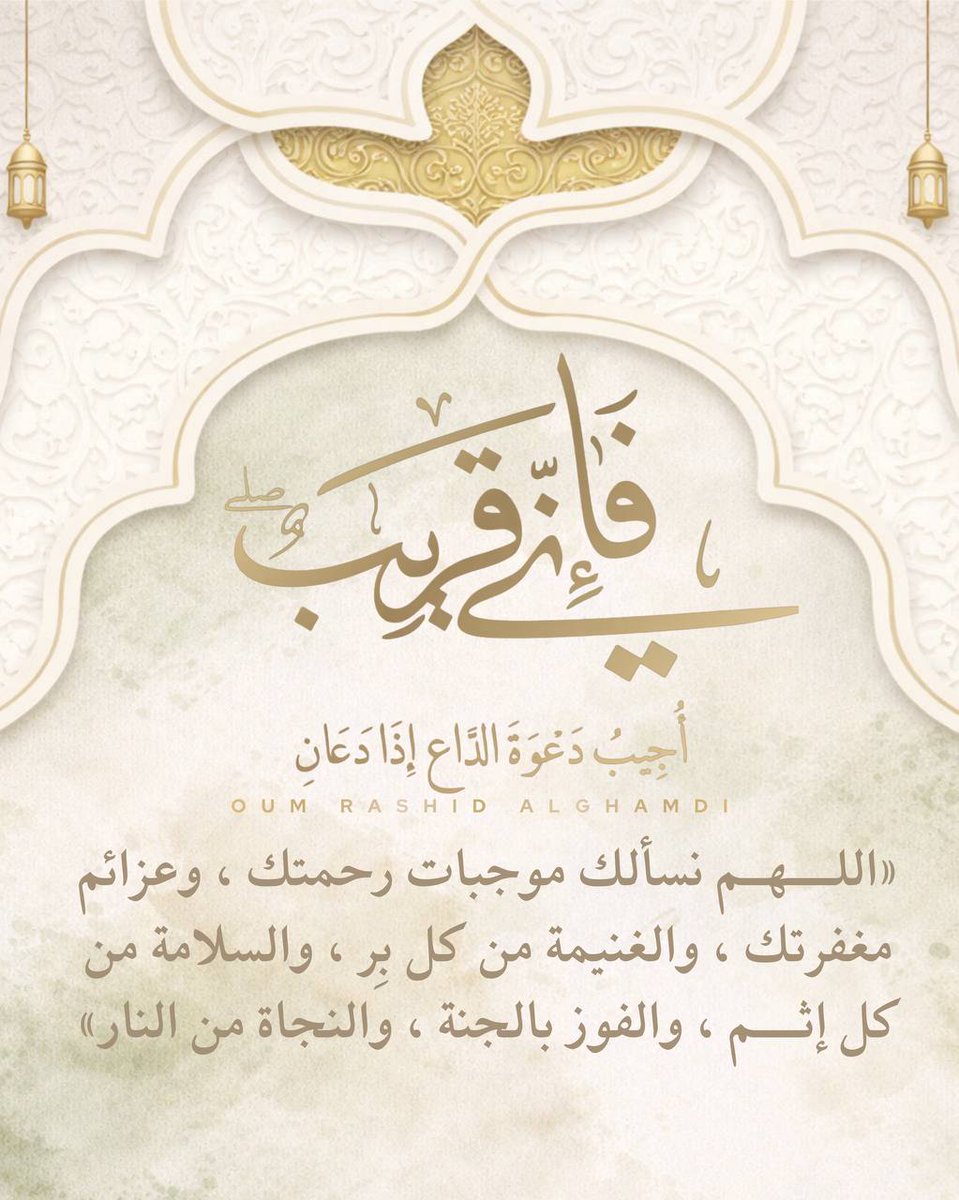 فَإِنِّي قَرِيبٌ ۖ
أُجِيبُ دَعْوَةَ الدَّاعِ إِذَا دَعَانِ
OUM RASHID ALGHAMDI
«اللـــهـــم نسألك موجبات رحمتك ، وعزائم
مغفرتك ، والغنيمة من كل بِر ، والسلامة من
كل إثـــم ، والفوز بالجنة ، والنجاة من النار»